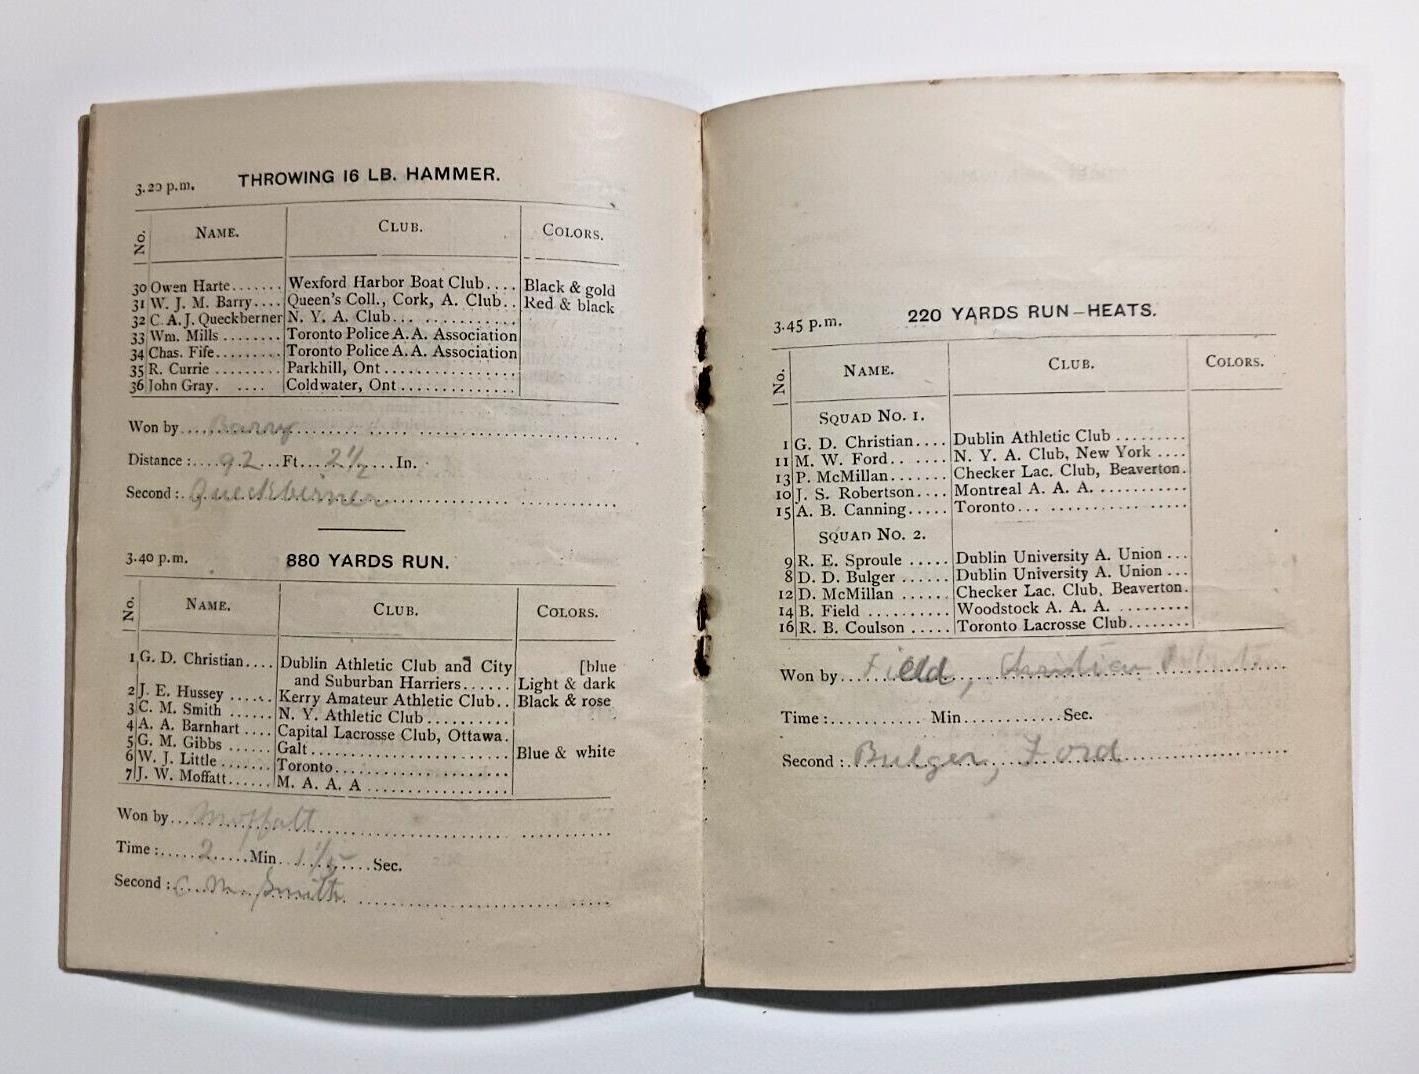 3.20 p.m. THROWING 16 LB. HAMMER.
No. NAME. CLUB. COLORS.
30 Owen Harte....... Wexford Harbor Boat Club.... Black & gold
31 W. J. M. Barry.... Queen's Coll., Cork, A. Club.. Red & black
32 C. A. J. Queckberner N. Y. A. Club... ............
33 Wm. Mills ........ Toronto Police A. A. Association
34 Chas. Fife......... Toronto Police A. A. Association
35 R. Currie ......... Parkhill, Ont ................
36 John Gray. .... Coldwater, Ont .............
Won by....Barry....
Distance :....92...Ft...2½....In.
Second :.Queckberner....
3.40 p.m. 880 YARDS RUN.
No. NAME. CLUB. COLORS.
1 G. D. Christian.... Dublin Athletic Club and City [blue
and Suburban Harriers...... Light & dark
2 J. E. Hussey ...... Kerry Amateur Athletic Club.. Black & rose
3 C. M. Smith ...... N. Y. Athletic Club ..........
4 A. A. Barnhart .... Capital Lacrosse Club, Ottawa.
5 G. M. Gibbs ...... Galt........................ Blue & white
6 W. J. Little....... Toronto.....................
7 J. W. Moffatt...... M. A. A. A ................
Won by...Moffatt....
Time :.....2.....Min. 1⅕ ....Sec.
Second : C. M. Smith ....
3.45 p.m. 220 YARDS RUN—HEATS.
No. NAME. CLUB. COLORS.
SQUAD NO. 1.
1 G. D. Christian.... Dublin Athletic Club .........
11 M. W. Ford....... N. Y. A. Club, New York ....
13 P. McMillan....... Checker Lac. Club, Beaverton.
10 J. S. Robertson.... Montreal A. A. A. ...........
15 A. B. Canning..... Toronto... .................
SQUAD NO. 2.
9 R. E. Sproule ..... Dublin University A. Union ...
8 D. D. Bulger ...... Dublin University A. Union ...
12 D. McMillan ...... Checker Lac. Club, Beaverton.
14 B. Field .......... Woodstock A. A. A. .........
16 R. B. Coulson ..... Toronto Lacrosse Club........
Won by...Field, Christian
Time :........... Min............Sec.
Second :.Bulger, Ford....